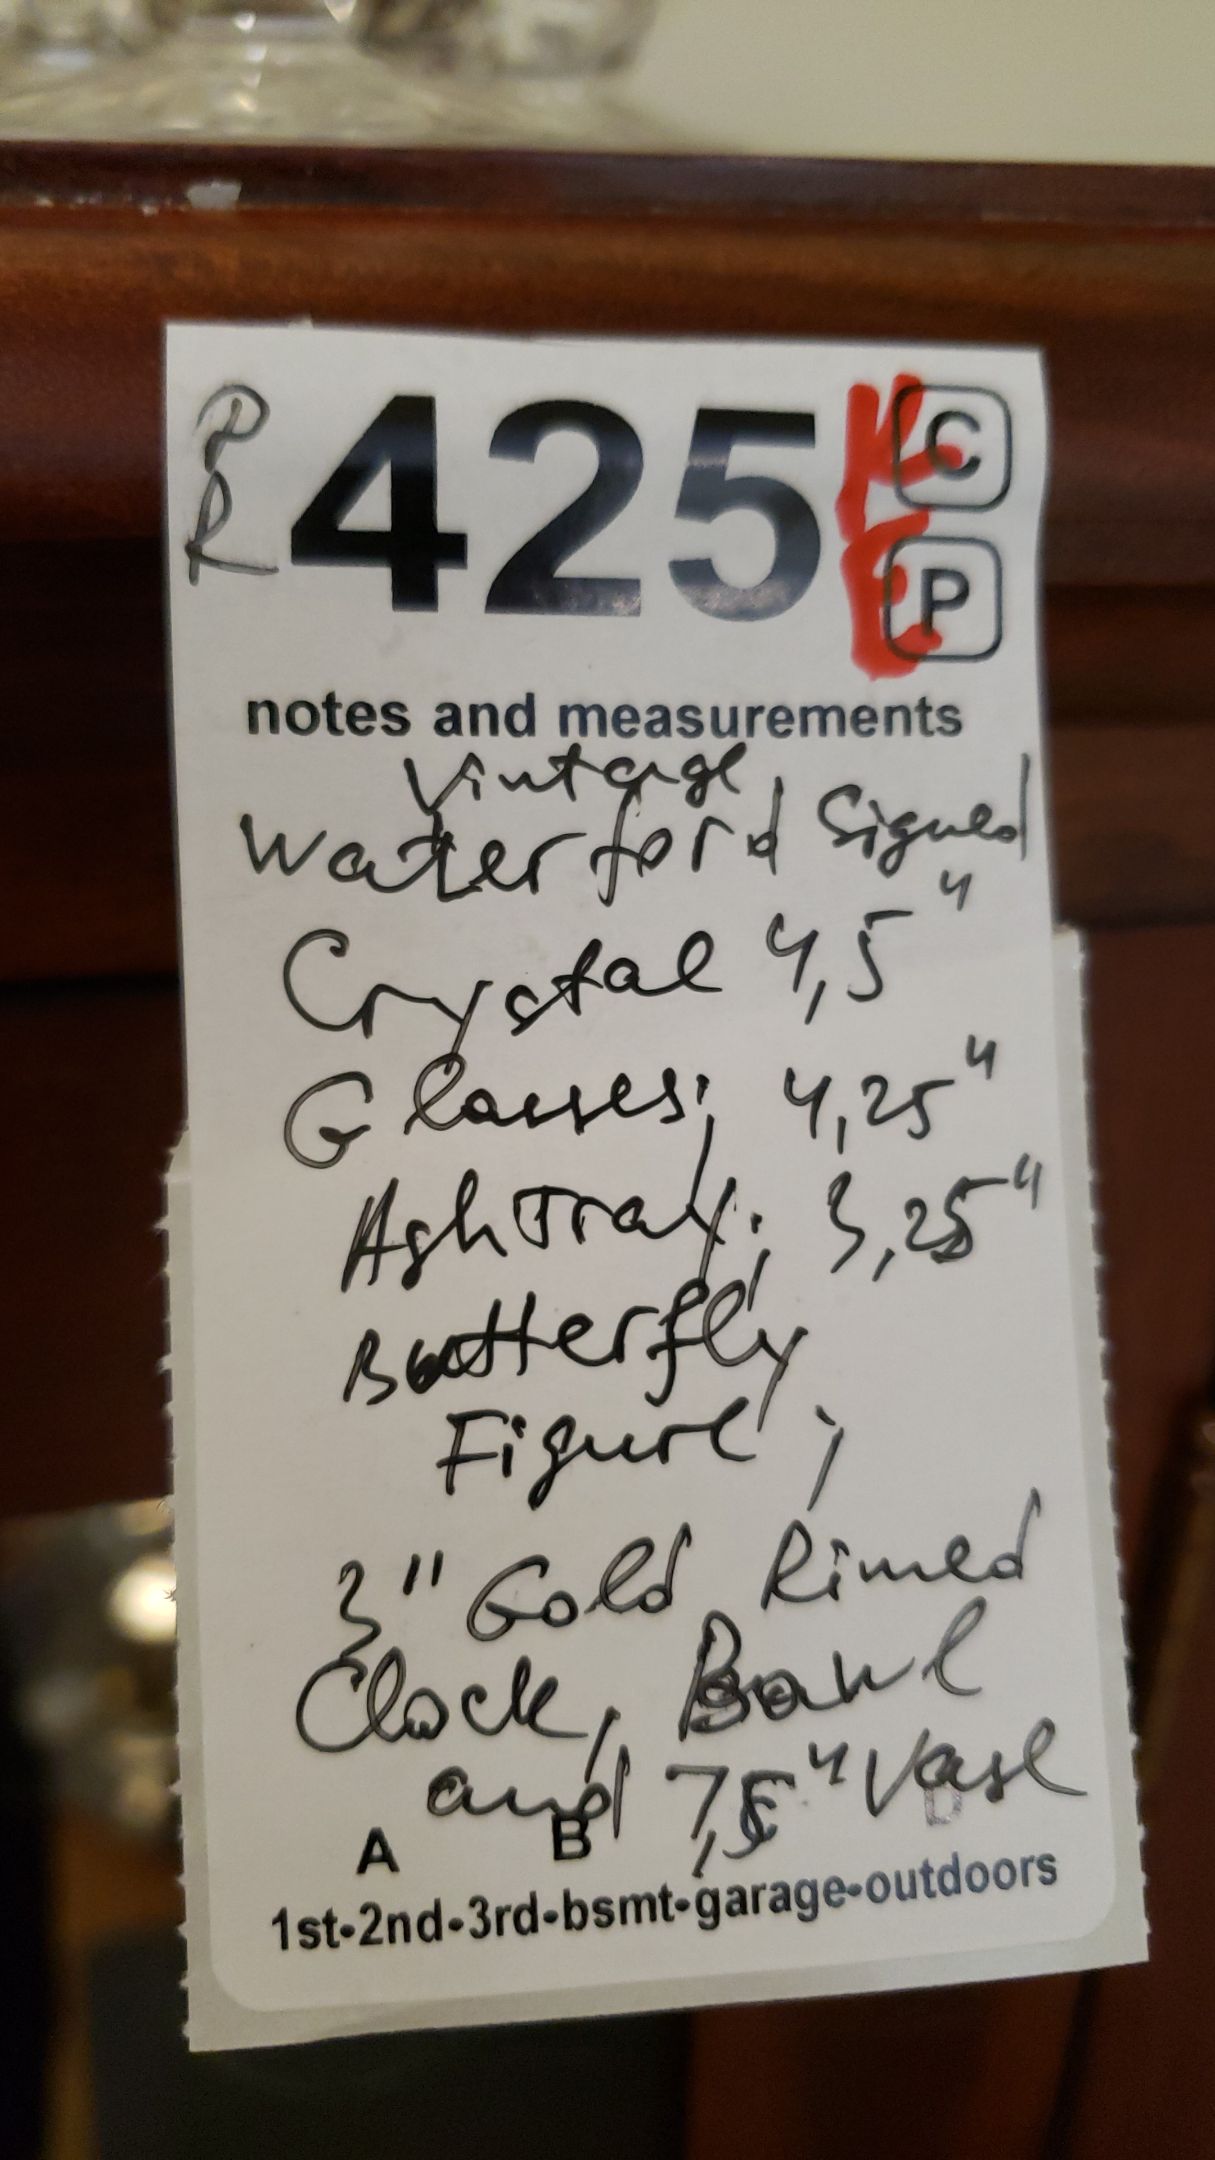 R
R
425
C
P
notes and measurements
Vintage
Waterford Signed
Crystal 4,5"
Glasses; 4,25"
AshTray; 3,25"
Butterfly
Figure;
3" Gold Rimed
Clock, Bowl
and 7,5" Vase
A B D
1st•2nd•3rd•bsmt•garage•outdoors